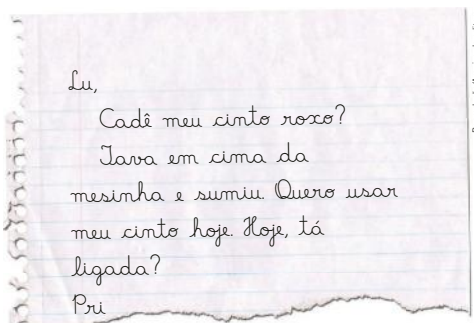 Lu,
Cadê meu cinto roxo?
Tava em cima da
mesinha e sumiu. Quero usar
meu cinto hoje. Hoje, tá
ligada?
Pri